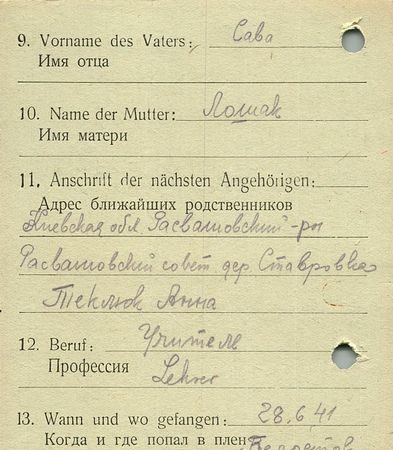 9. Vorname des Vaters: Сава
Имя отца
10. Name der Mutter: Лошак
Имя матери
11. Anschrift der nächsten Angehörigen:
Адрес ближайших родственников
Киевская обл. Расвашовский р-н
Расвашовский совет дер. Ставровка
Теклюк Анна
12. Beruf: Учитель
Профессия Lehrer
13. Wann und wo gefangen: 28.6.41
Когда и где попал в плен